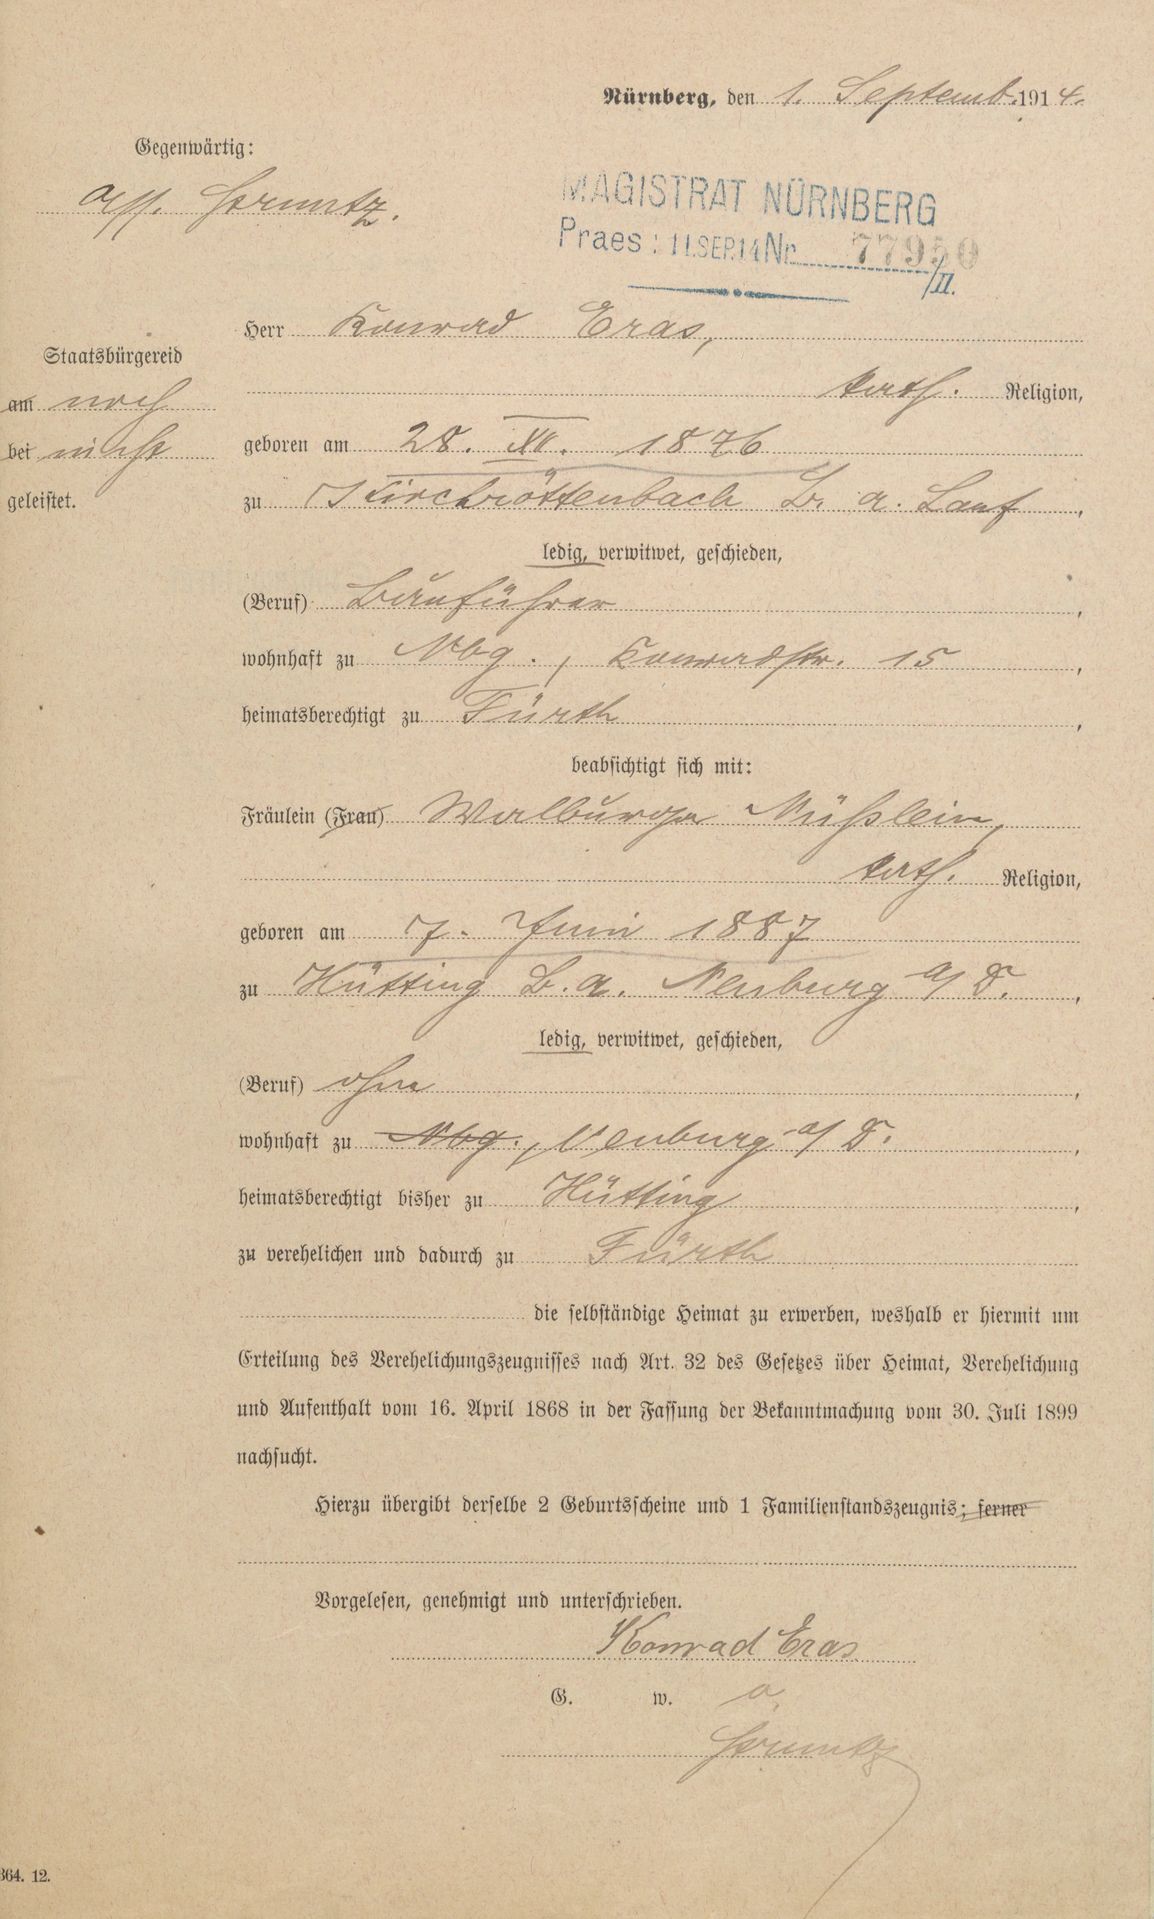 Nürnberg, den 1. Septemb. 1914.
Gegenwärtig:
MAGISTRAT NÜRNBERG
Praes: 11.SEP.14 Nr. 77950
/II.
Herr Konrad Eras,
Staatsbürgereid
kath. Religion,
am noch
geboren am 28. XI. 1876
bei nicht
zu Kirchröttenbach B. a. Lauf,
geleistet.
ledig, verwitwet, geschieden,
(Beruf) Bauführer,
wohnhaft zu Nbg., Konradstr. 15,
heimatsberechtigt zu Fürth,
beabsichtigt sich mit:
Fräulein (Frau) Walburga Nüßlein,
kath. Religion,
geboren am 7. Juni 1887
zu Hütting B. a. Neuburg a/D.,
ledig, verwitwet, geschieden,
(Beruf) ohne,
wohnhaft zu Nbg., Neuburg a/D.,
heimatsberechtigt bisher zu Hütting,
zu verehelichen und dadurch zu Fürth
die selbständige Heimat zu erwerben, weshalb er hiermit um
Erteilung des Verehelichungszeugnisses nach Art. 32 des Gesetzes über Heimat, Verehelichung
und Aufenthalt vom 16. April 1868 in der Fassung der Bekanntmachung vom 30. Juli 1899
nachsucht.
Hierzu übergibt derselbe 2 Geburtsscheine und 1 Familienstandszeugnis; ferner
Vorgelesen, genehmigt und unterschrieben.
Konrad Eras
G. w. o.
364. 12.